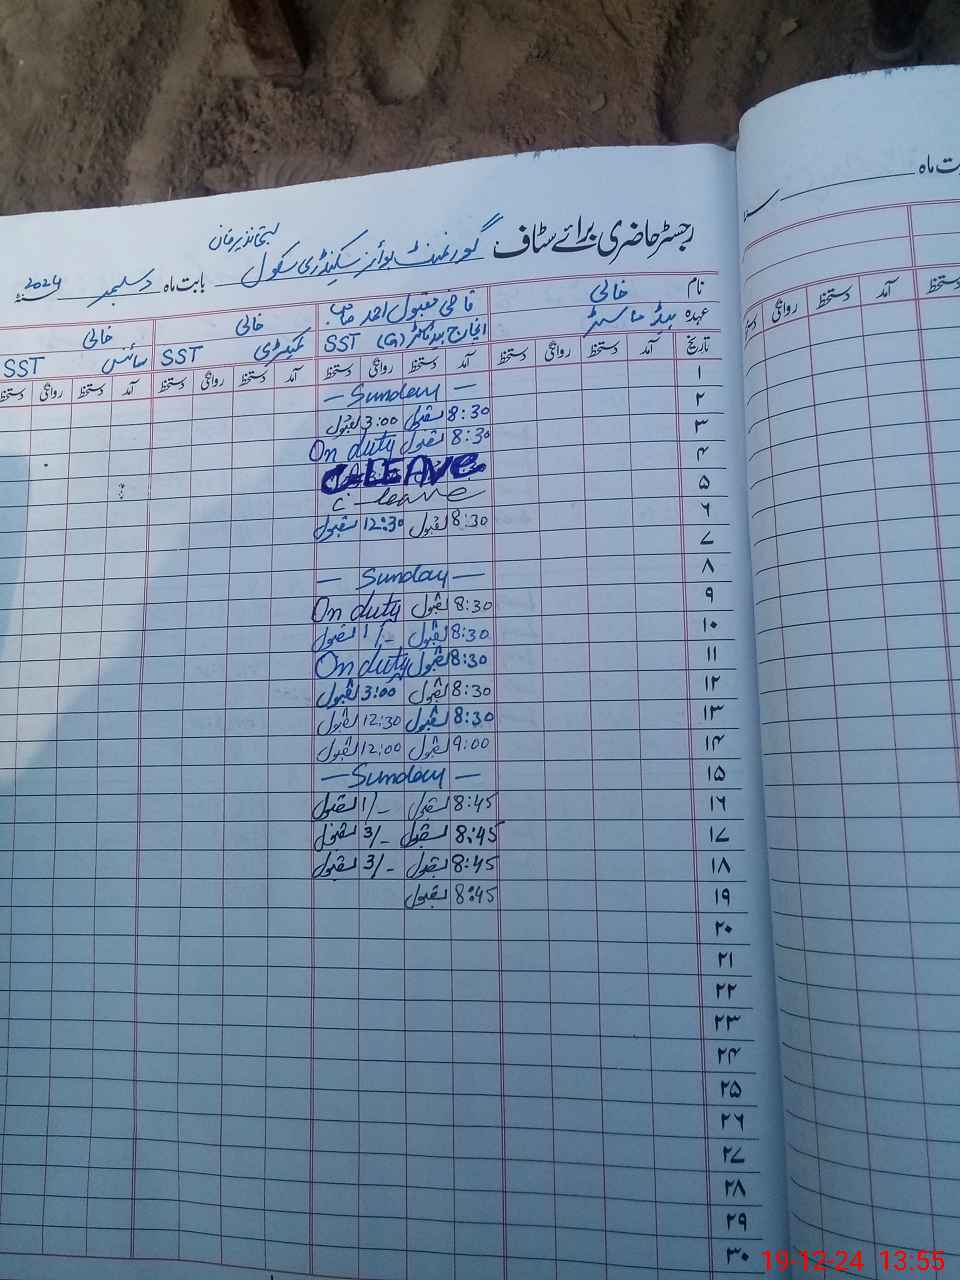 بابت ماہ
دستخط آمد دستخط روانگی
رجسٹر حاضری برائے سٹاف گورنمنٹ بوائز سکینڈری سکول بابت ماہ دسمبر 2024
نام خالی قاضی مقبول احمد خالی خالی
عہدہ ہیڈ ماسٹر انچارج ہیڈماسٹر SST (G) SST سائنس SST
تاریخ آمد دستخط روانگی دستخط آمد دستخط روانگی دستخط آمد دستخط روانگی دستخط آمد دستخط روانگی دستخط
۱ — Sunday —
۲ 8:30 مقبول 3:00 مقبول
۳ 8:30 مقبول On duty
۴ C-LEAVE
۵ C-leave
۶ 8:30 مقبول 12:30 مقبول
۷
۸ — Sunday —
۹ 8:30 مقبول On duty
۱۰ 8:30 مقبول 1/- مقبول
۱۱ 8:30 مقبول On duty
۱۲ 8:30 مقبول 3:00 مقبول
۱۳ 8:30 مقبول 12:30 مقبول
۱۴ 9:00 مقبول 12:00 مقبول
۱۵ — Sunday —
۱۶ 8:45 مقبول 1/- مقبول
۱۷ 8:45 مقبول 3/- مقبول
۱۸ 8:45 مقبول 3/- مقبول
۱۹ 8:45 مقبول
۲۰
۲۱
۲۲
۲۳
۲۴
۲۵
۲۶
۲۷
۲۸
۲۹
۳۰
19-12-24 13.55